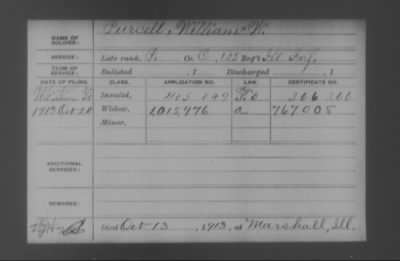 NAME OF SOLDIER: Purcell, William W.
SERVICE: Late rank, P. Co. C, 135 Reg't Ill. Inf.
TERM OF SERVICE: Enlisted , 1 Discharged , 1
DATE OF FILING. CLASS. APPLICATION NO. LAW. CERTIFICATE NO.
Invalid, 405 049 306 200
1913 Oct 20 Widow, 1,015,976 a 767005
Minor,
ADDITIONAL SERVICES:
REMARKS:
Died Oct 13, 1913, at Marshall, Ill.